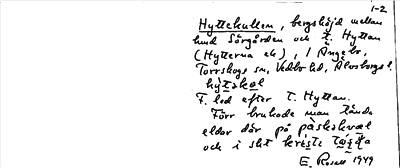 1-2
Hyttekullen, bergshöjd mellan
hmd Sörgården och t. Hyttan
(Hytterna ek), i Ängebo,
Torrskogs sn, Vedbo hd, Älvsborgs l.
F. led efter T. Hyttan.
Förr brukade man tända
eldar där på påskakväl
och i skt
E. Rosell 1949